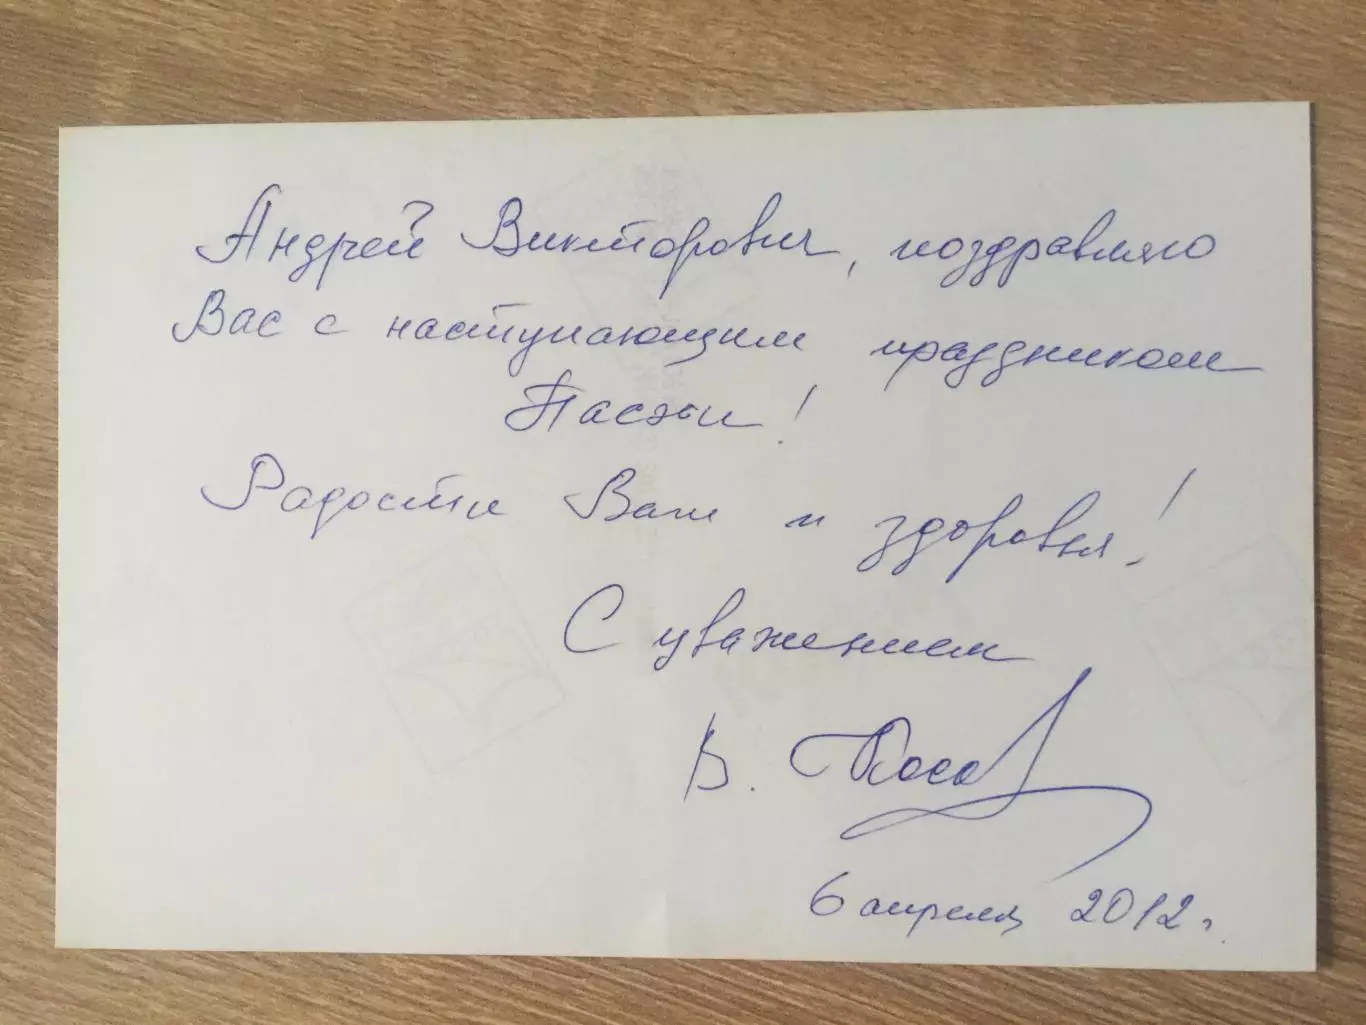 Андрей Викторович, поздравляю
Вас с наступающим праздником
Пасхи!
Радости Вам и здоровья!
С уважением
В. Косов
6 апреля 2012 г.